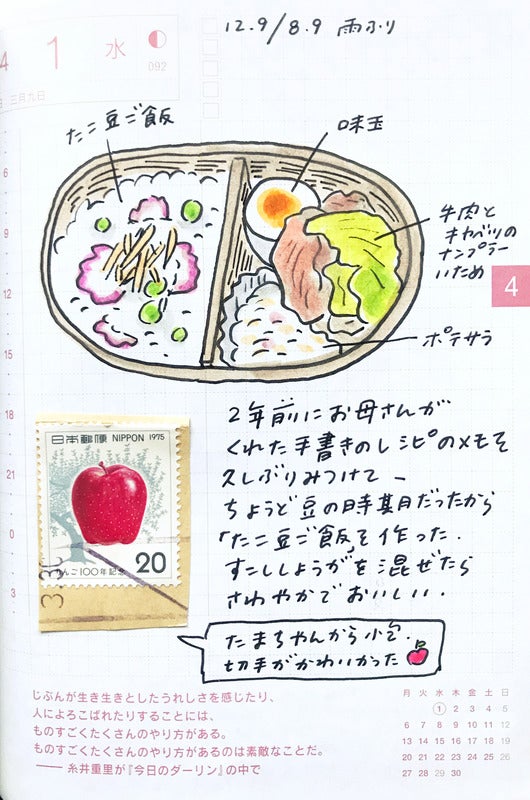 12.9/8.9 雨ふり
4
1 水
092
三月九日
たこ豆ご飯
味玉
牛肉と
キャベツの
ナンプラー
いため
ポテサラ
6
9
12
15
18
21
0
3
4
2年前にお母さんが
くれた手書きのレシピのメモを
久しぶりみつけてー
ちょうど豆の時期だったから
「たこ豆ご飯」を作った.
すこししょうがを混ぜたら
さわやかでおいしい.
日本郵便 NIPPON 1975
りんご100年記念 20
たまちゃんから小包.
切手がかわいかった
じぶんが生き生きとしたうれしさを感じたり、
人によろこばれたりすることには、
ものすごくたくさんのやり方がある。
ものすごくたくさんのやり方があるのは素敵なことだ。
── 糸井重里が『今日のダーリン』の中で
月 火 水 木 金 土 日
1 2 3 4 5
6 7 8 9 10 11 12
13 14 15 16 17 18 19
20 21 22 23 24 25 26
27 28 29 30